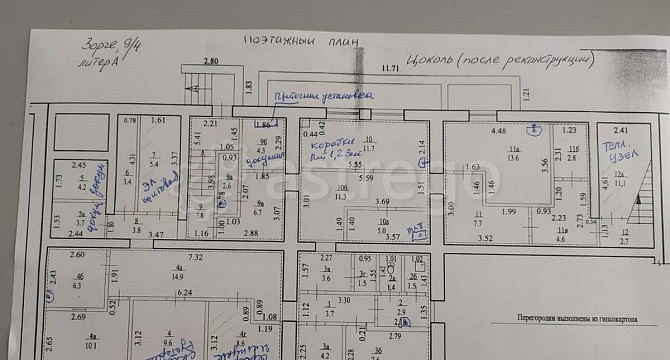 Зорге, 9/4
литер А
Поэтажный план
Цоколь (после реконструкции)
2.80
1.83
11.71
1.21
Приточная установка
0.78
1.61
2.21
1.86
0.44
0.42
10
11.7
4.48
1.23
2.41
Тепл.
узел
7
5.4
4.31
3.37
5.41
1.45
1.05
0.93
9б
4.3
2.29
коробки
2.14
11а
13.6
3.56
11б
2.8
12а
11,1
2.45
5
4.2
1.73
6
3.4
Эл
щитовая
3.98
9а
2.6
1.85
5.59
5.55
1.63
astrego
1.53
5а
3.7
2.44
8
3.8
3.47
9
7.8
0.78
1.03
1.00
1.16
2.07
9а
6.7
2.88
3.01
10б
11.3
1.49
1.40
3.69
10а
5.0
3.57
1.51
3.00
11
7.7
1.46
1.46
1.99
0.93
3.52
2.23
11в
4.6
1.59
4.61
0.34
1.13
12
2.7
2.60
4б
6.3
2.43
1.91
7.32
4а
14.9
6.24
0.52
0.89
0.89
1.08
1.19
2.69
4в
10.1
2.65
3.12
4
9.6
3.12
4г
8.6
2.27
3а
3.6
0.95
1.55
1.42
1.01
2а
1.4
2б
1.5
1.26
3
3.7
3.30
1.10
0.21
2
2.9
2.18
1.35
2.79
3б
3в
4.2
Перегородки выполнены из гипсокартона